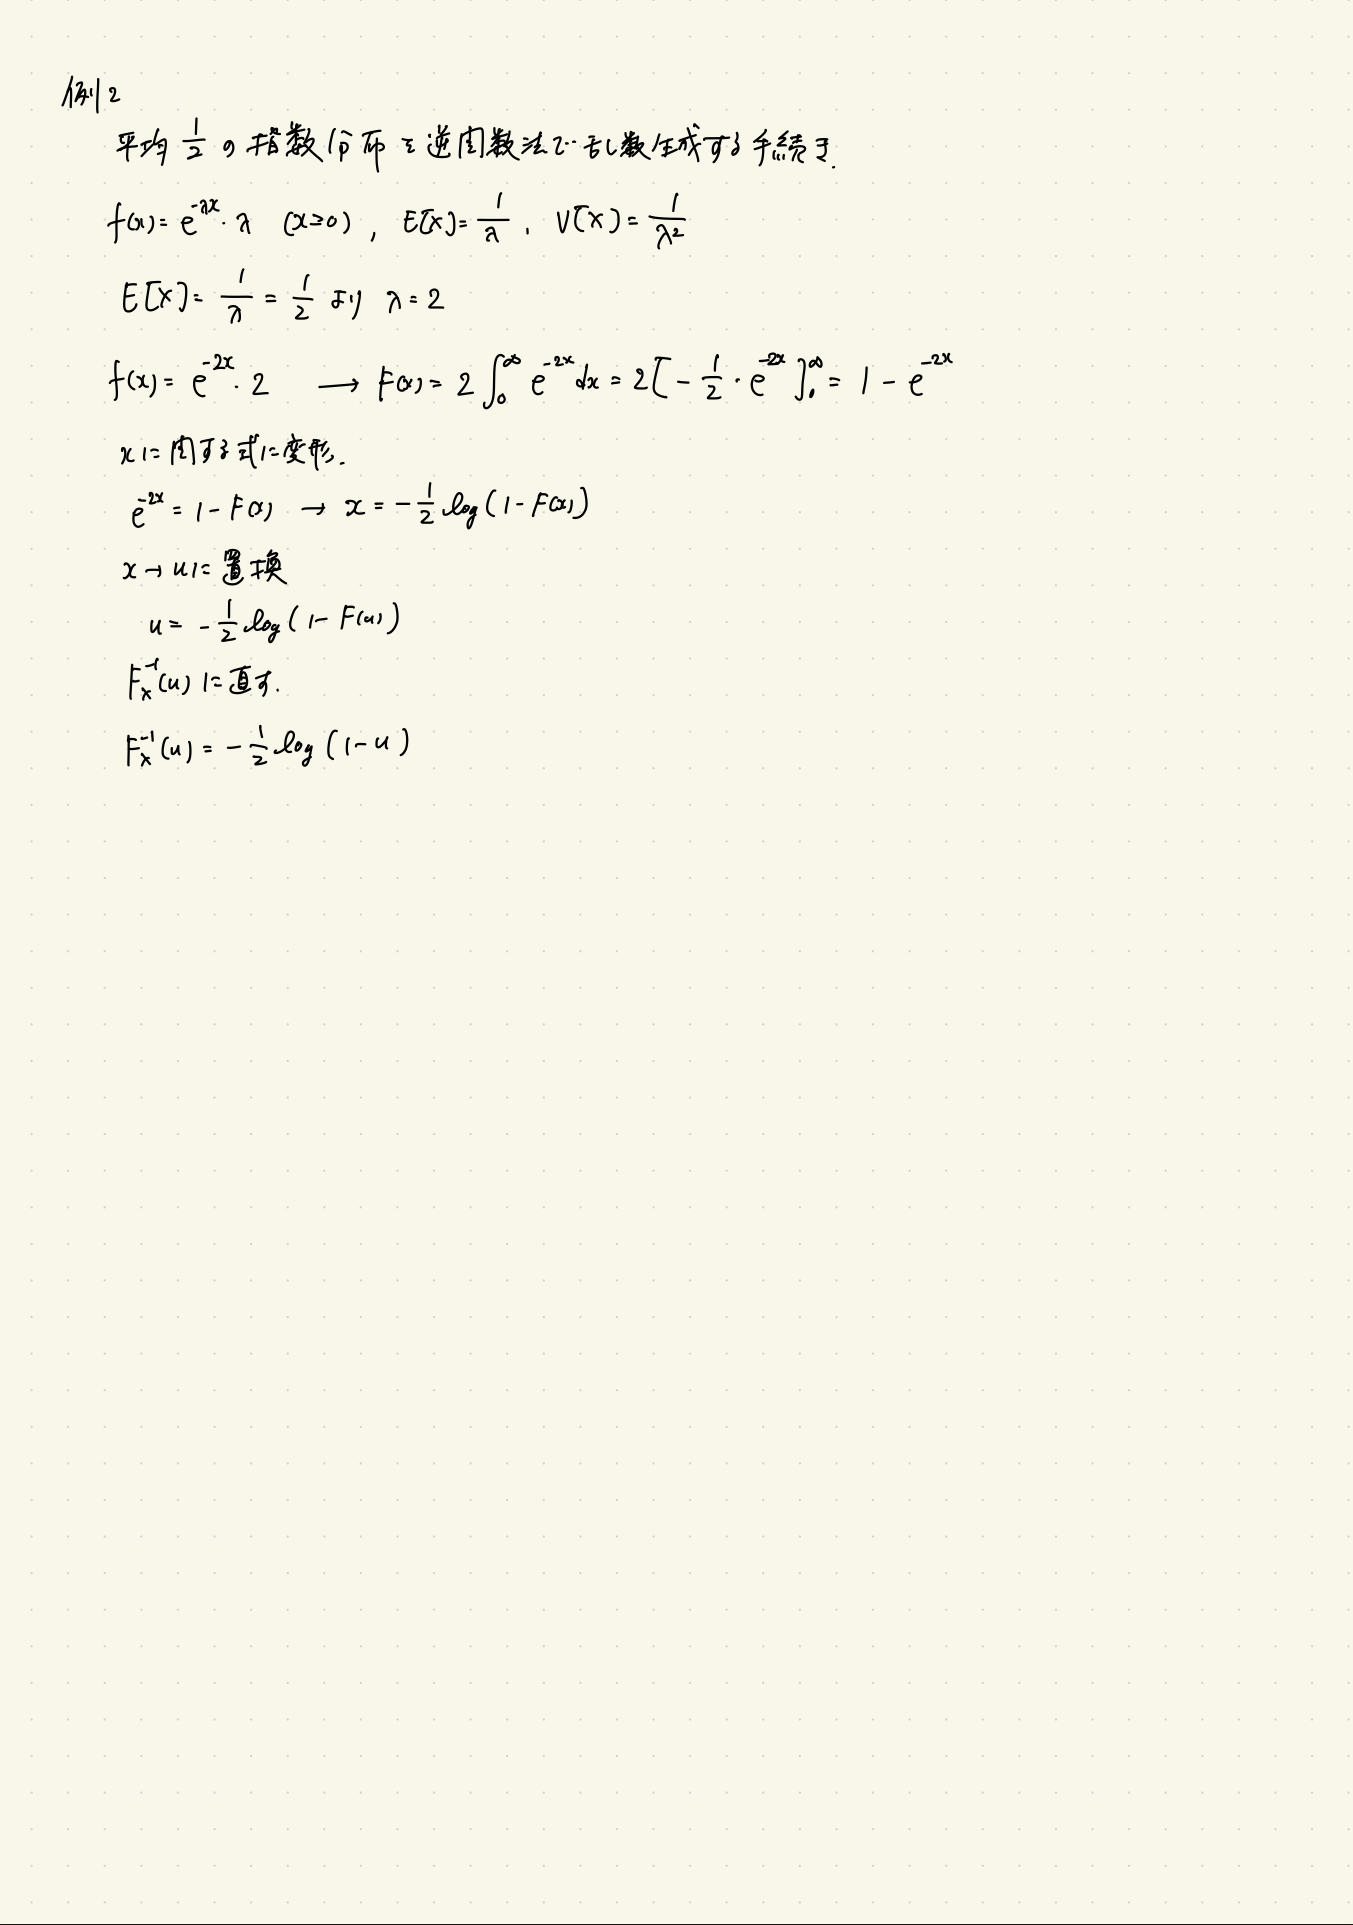 例2
平均 1/2 の指数分布を逆関数法で乱数生成する手続き.
f(x) = e^{-λx}・λ (x≥0) , E[X] = 1/λ , V[X] = 1/λ²
E[X] = 1/λ = 1/2 より λ = 2
f(x) = e^{-2x}・2 ⟶ F(x) = 2∫_0^∞ e^{-2x}dx = 2[-1/2・e^{-2x}]_0^∞ = 1 - e^{-2x}
xに関する式に変形.
e^{-2x} = 1 - F(x) → x = -1/2 log(1 - F(x))
x → uに置換
u = -1/2 log(1 - F(u))
F_x^{-1}(u) に直す.
F_x^{-1}(u) = -1/2 log(1 - u)